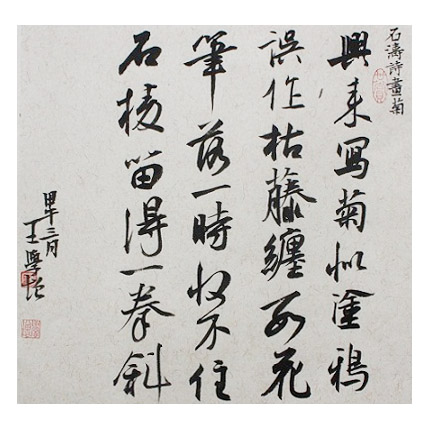 石濤詩畫菊
興来寫菊似塗鴉
誤作枯藤纏數花
筆落一時收不住
石棱留得一拳斜
甲午三月
王學